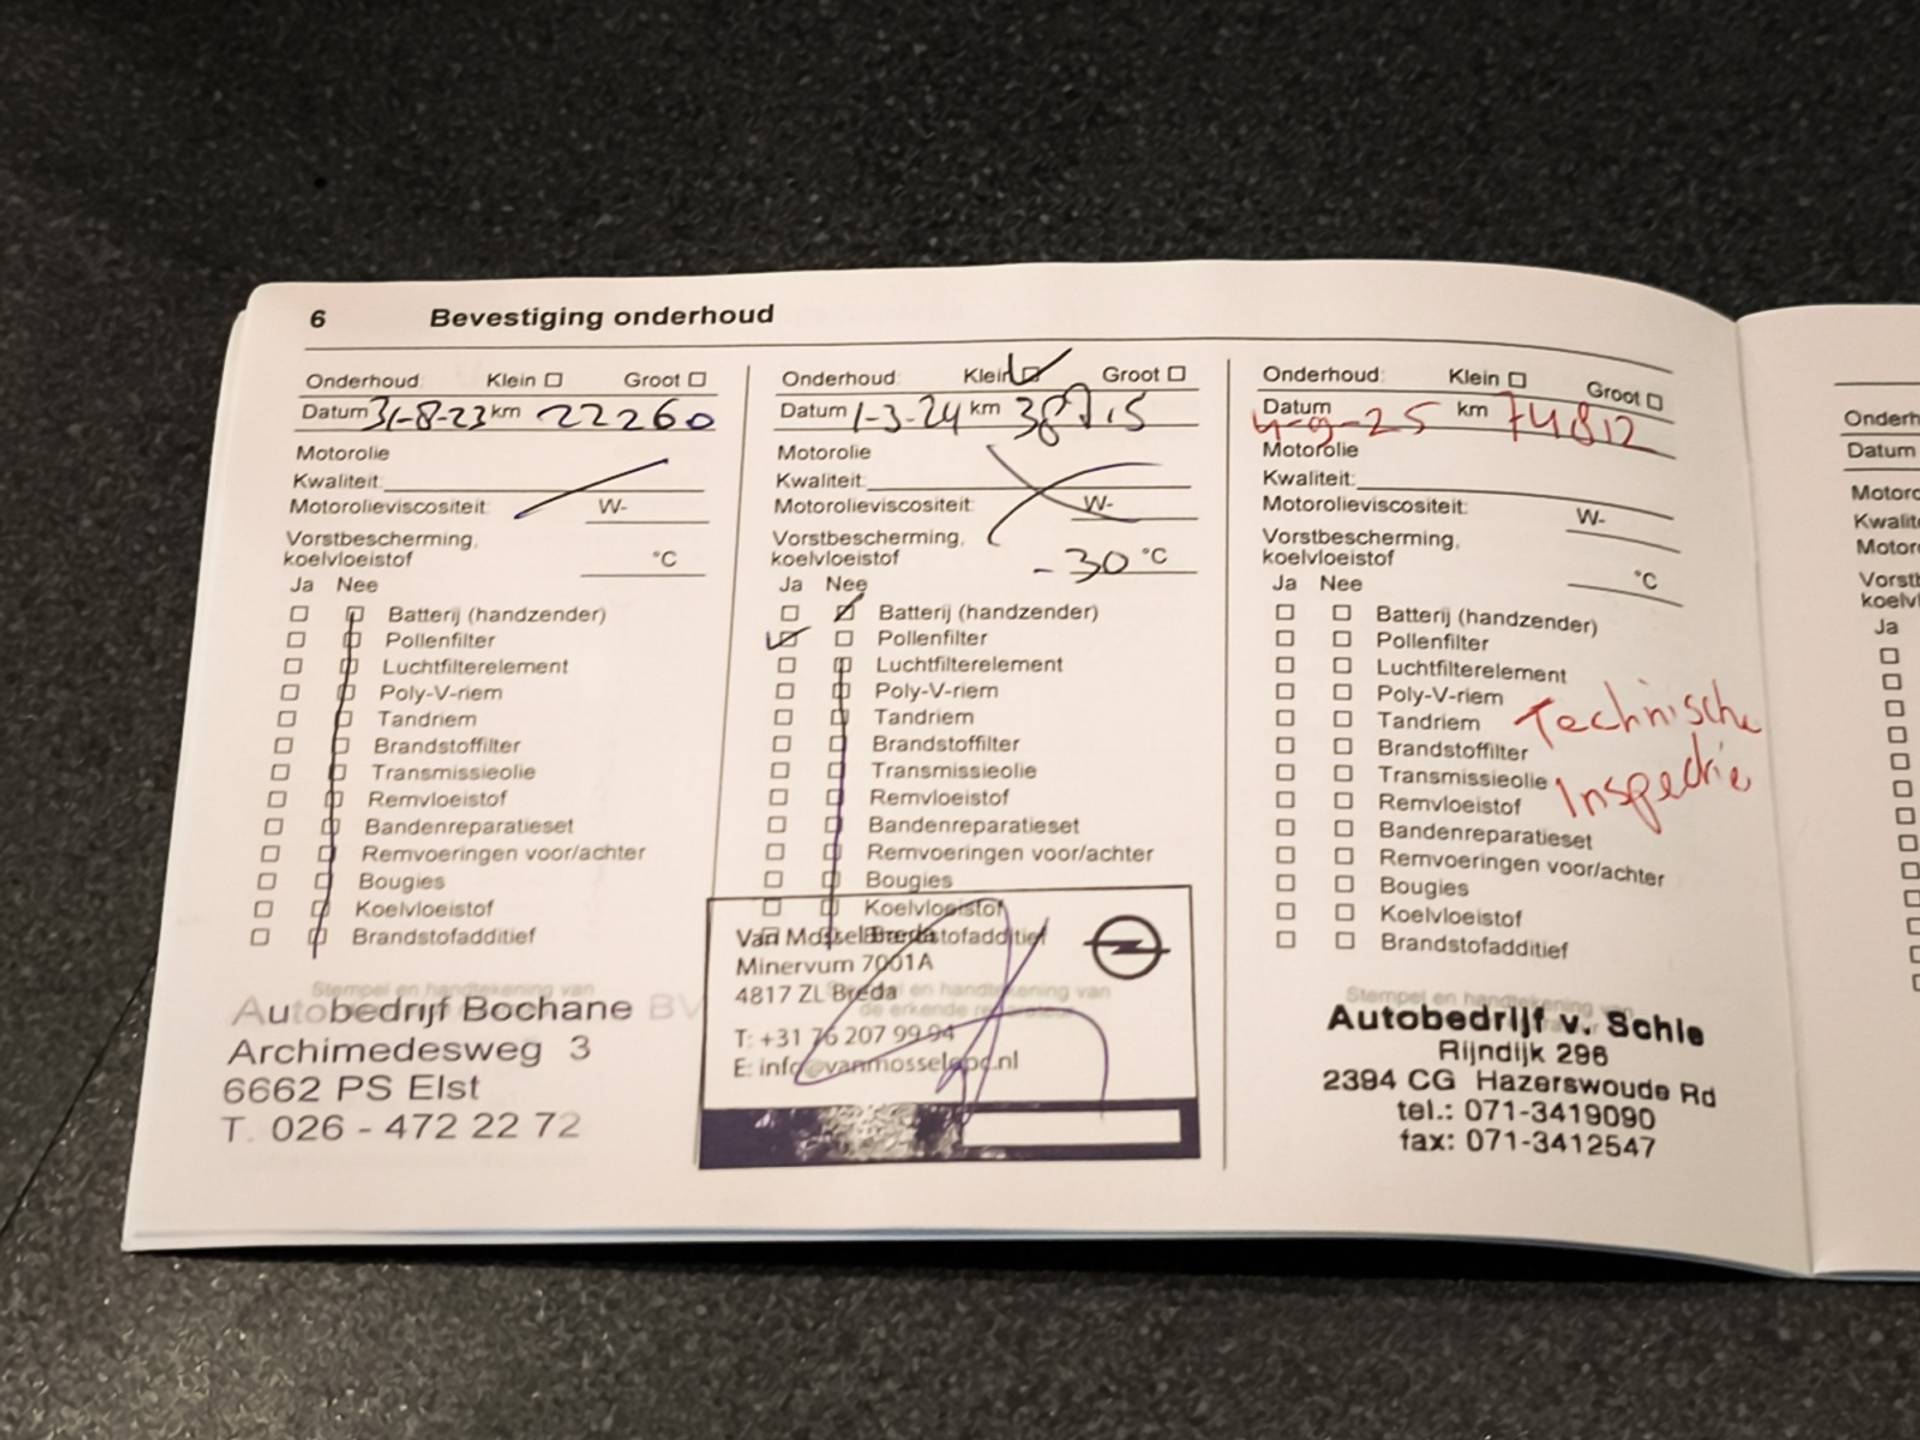 6 Bevestiging onderhoud
Onderhoud: Klein Groot
Datum 31-8-23 km 22260
Motorolie
Kwaliteit:
Motorolieviscositeit: W-
Vorstbescherming,
koelvloeistof °C
Ja Nee
Batterij (handzender)
Pollenfilter
Luchtfilterelement
Poly-V-riem
Tandriem
Brandstoffilter
Transmissieolie
Remvloeistof
Bandenreparatieset
Remvoeringen voor/achter
Bougies
Koelvloeistof
Brandstofadditief
Stempel en handtekening van
Autobedrijf Bochane BV
Archimedesweg 3
6662 PS Elst
T. 026 - 472 22 72
Onderhoud: Klein Groot
Datum 1-3-24 km 38715
Motorolie
Kwaliteit:
Motorolieviscositeit: W-
Vorstbescherming,
koelvloeistof -30 °C
Ja Nee
Batterij (handzender)
Pollenfilter
Luchtfilterelement
Poly-V-riem
Tandriem
Brandstoffilter
Transmissieolie
Remvloeistof
Bandenreparatieset
Remvoeringen voor/achter
Bougies
Koelvloeistof
Brandstofadditief
Van Mossel Breda
Minervum 7001A
4817 ZL Breda
en handtekening van
de erkende reparateur
T: +31 76 207 99 94
E: info@vanmosselopc.nl
Onderhoud: Klein Groot
Datum 4-9-25 km 74812
Motorolie
Kwaliteit:
Motorolieviscositeit: W-
Vorstbescherming,
koelvloeistof °C
Ja Nee
Batterij (handzender)
Pollenfilter
Luchtfilterelement
Poly-V-riem
Tandriem
Brandstoffilter
Transmissieolie
Remvloeistof
Bandenreparatieset
Remvoeringen voor/achter
Bougies
Koelvloeistof
Brandstofadditief
Technische
Inspectie
Stempel en handtekening van
Autobedrijf v. Schie
Rijndijk 296
2394 CG Hazerswoude Rd
tel.: 071-3419090
fax: 071-3412547
Onderh
Datum
Motoro
Kwalite
Motor
Vorst
koelv
Ja